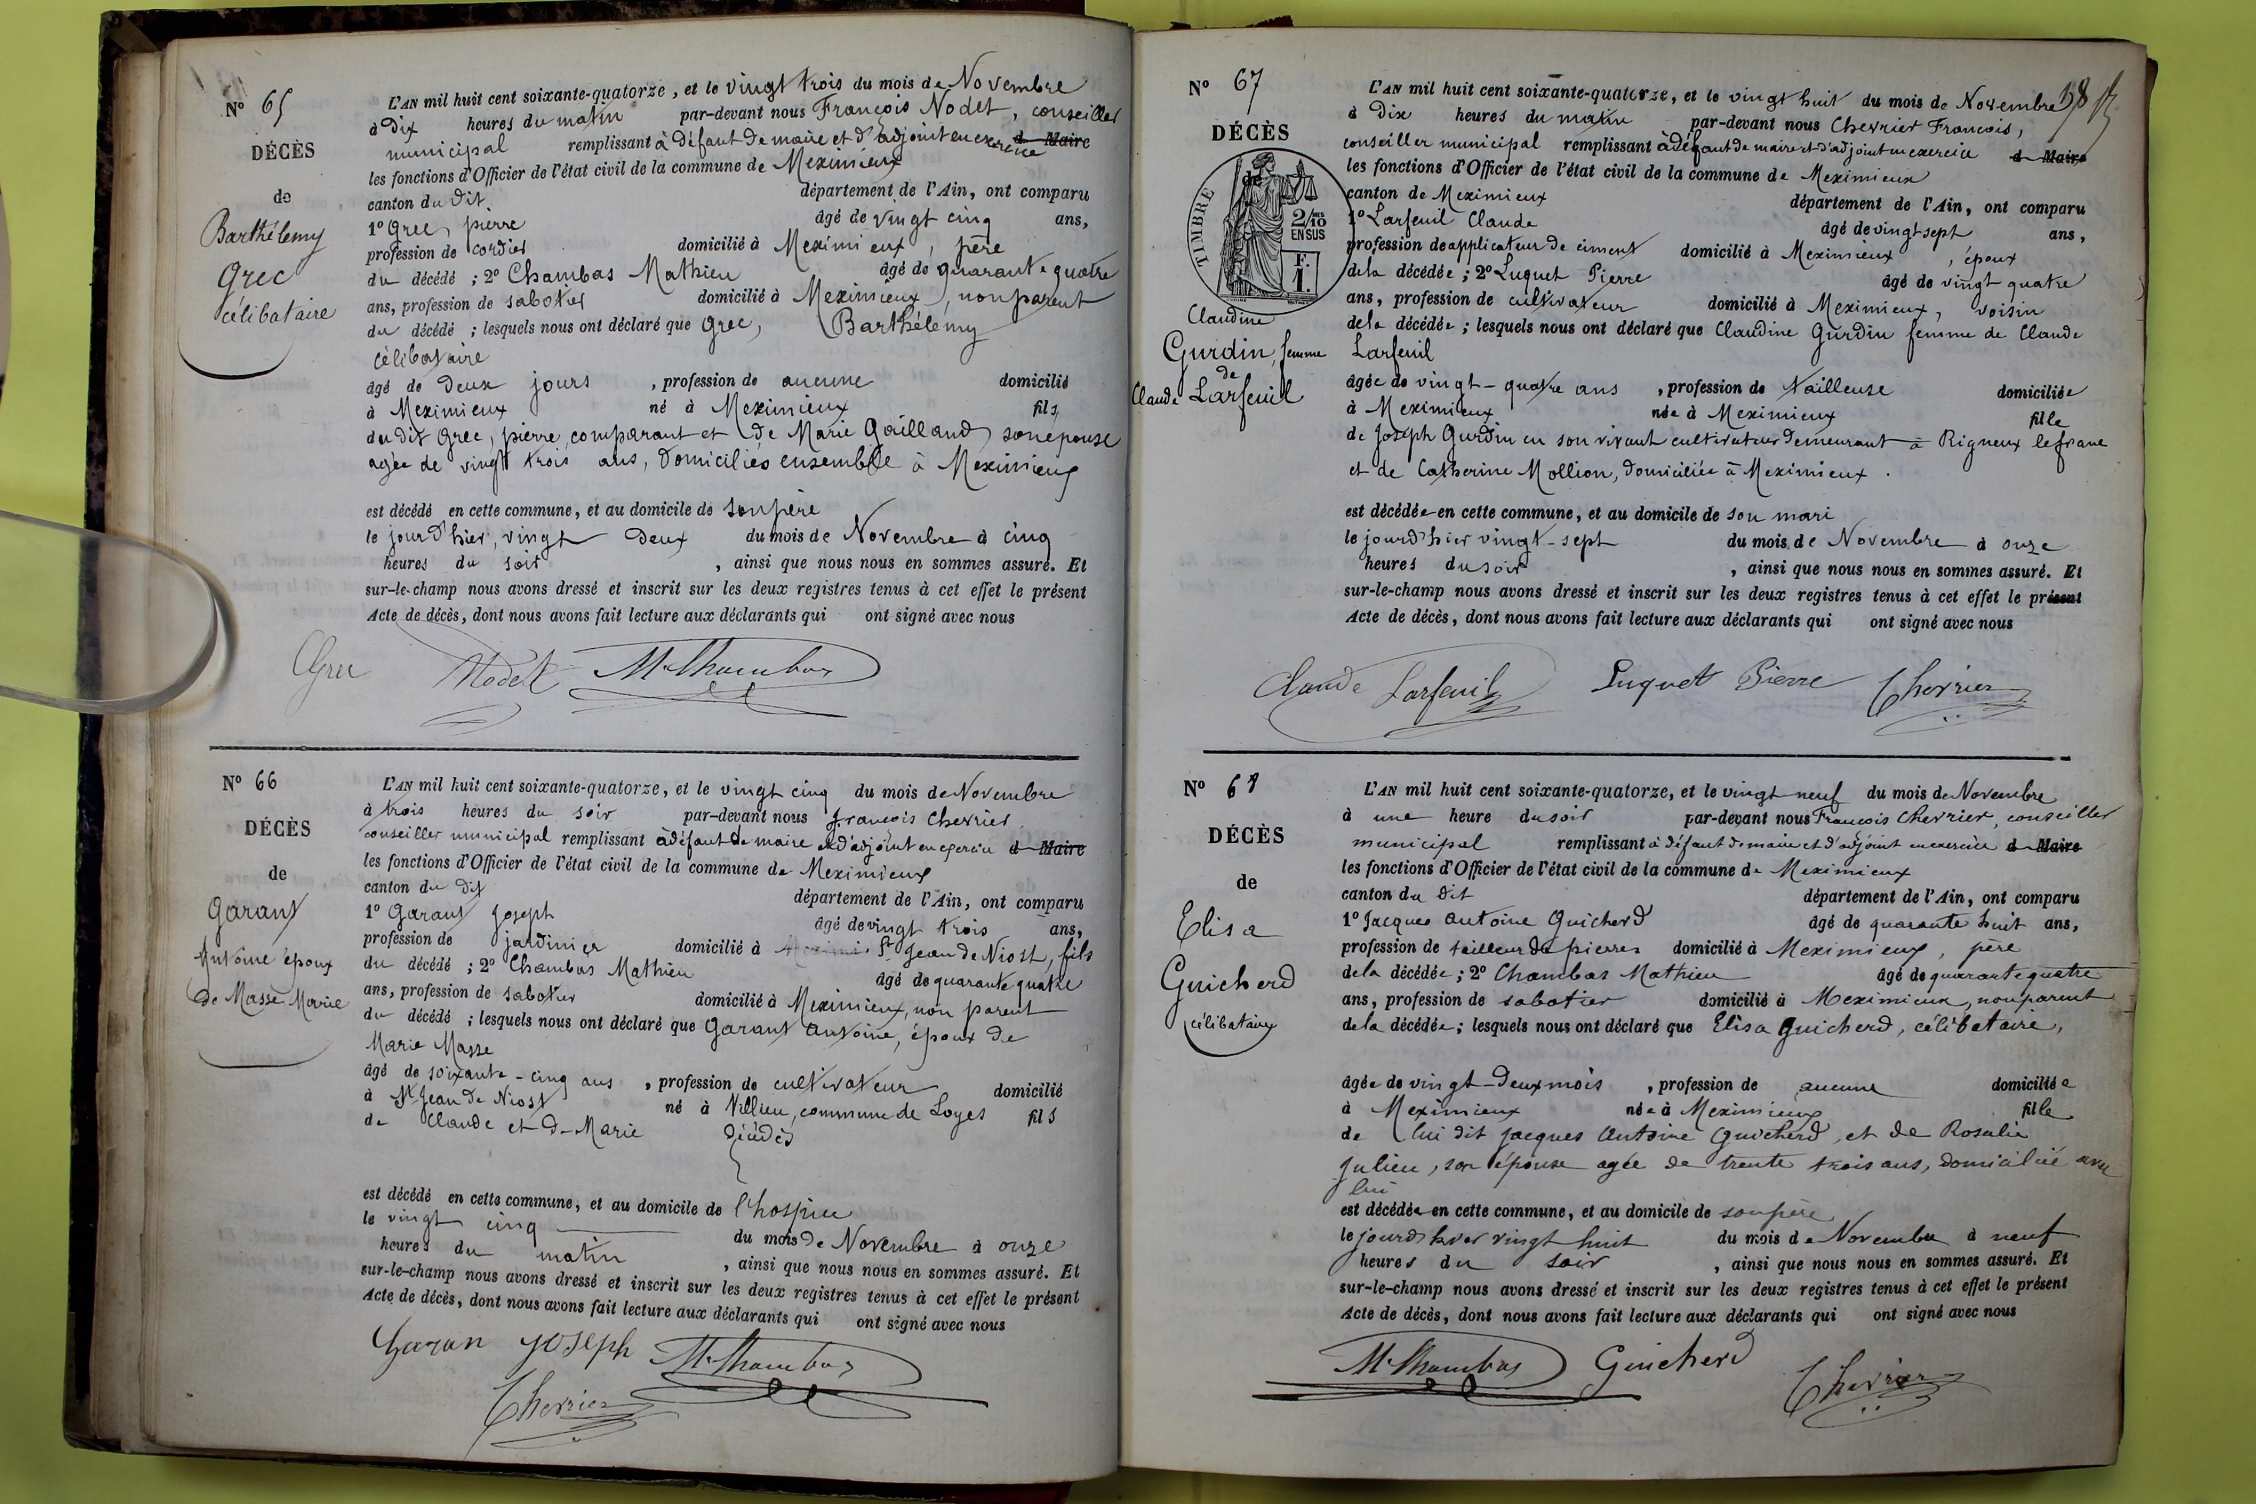 Nº 65
DÉCÈS
de
Barthélemy
Grec
célibataire
L'AN mil huit cent soixante-quatorze, et le vingt trois du mois de Novembre
à Dix heures du matin par-devant nous François Nodet, conseiller
municipal remplissant à défaut de maire et d'adjoint en exercice d Maire
les fonctions d'Officier de l'état civil de la commune de Meximieux
canton du dit département de l'Ain, ont comparu
1º Grec, pierre âgé de vingt cinq ans,
profession de cordier domicilié à Meximieux, père
du décédé ; 2º Chambas Mathieu âgé de quarante quatre
ans, profession de sabotier domicilié à Meximieux, non parent
du décédé ; lesquels nous ont déclaré que Grec, Barthélemy
célibataire
âgé de deux jours , profession de aucune domicilié
à Meximieux né à Meximieux fils
du dit Grec, pierre, comparant et de Marie Gailland, son épouse
agée de vingt trois ans, domiciliés ensemble à Meximieux
est décédé en cette commune, et au domicile de son père
le jour d'hier, vingt deux du mois de Novembre à cinq
heures du soir , ainsi que nous nous en sommes assuré. Et
sur-le-champ nous avons dressé et inscrit sur les deux registres tenus à cet effet le présent
Acte de décès, dont nous avons fait lecture aux déclarants qui ont signé avec nous
Grec Nodet M. Chambas
Nº 66
DÉCÈS
de
Garant
Antoine époux
de Masse Marie
L'AN mil huit cent soixante-quatorze, et le vingt cinq du mois de Novembre
à trois heures du soir par-devant nous François Chevrier
conseiller municipal remplissant à défaut de maire et d'adjoint en exercice d Maire
les fonctions d'Officier de l'état civil de la commune de Meximieux
canton du dit département de l'Ain, ont comparu
1º Garant Joseph âgé de vingt trois ans,
profession de jardinier domicilié à St Jean de Niost, fils
du décédé ; 2º Chambas Mathieu âgé de quarante quatre
ans, profession de sabotier domicilié à Meximieux, non parent
du décédé ; lesquels nous ont déclaré que Garant Antoine, époux de
Marie Masse
âgé de soixante-cinq ans , profession de cultivateur domicilié
à St Jean de Niost né à Villieu, commune de Loyes fils
de Claude et de Marie décédés
est décédé en cette commune, et au domicile de l'hospice
le vingt cinq du mois de Novembre à onze
heures du matin , ainsi que nous nous en sommes assuré. Et
sur-le-champ nous avons dressé et inscrit sur les deux registres tenus à cet effet le présent
Acte de décès, dont nous avons fait lecture aux déclarants qui ont signé avec nous
Garan Joseph M. Chambas
Chevrier
58
Nº 67
DÉCÈS
de
TIMBRE
2/10 EN SUS
F. 1.
Claudine
Gurdin, femme
de
Claude Larfeuil
L'AN mil huit cent soixante-quatorze, et le vingt huit du mois de Novembre
à dix heures du matin par-devant nous Chevrier François,
conseiller municipal remplissant à défaut de maire et d'adjoint en exercice d Maire
les fonctions d'Officier de l'état civil de la commune de Meximieux
canton de Meximieux département de l'Ain, ont comparu
1º Larfeuil Claude âgé de vingt sept ans,
profession de applicateur de ciment domicilié à Meximieux, époux
de la décédée ; 2º Luquet Pierre âgé de vingt quatre
ans, profession de cultivateur domicilié à Meximieux, voisin
de la décédée ; lesquels nous ont déclaré que Claudine Gurdin femme de Claude
Larfeuil
âgée de vingt-quatre ans , profession de Tailleuse domiciliée
à Meximieux née à Meximieux fille
de Joseph Gurdin en son vivant cultivateur demeurant à Rigneux le franc
et de Catherine Mollion, domiciliée à Meximieux.
est décédée en cette commune, et au domicile de son mari
le jourd'hier vingt-sept du mois de Novembre à onze
heures du soir , ainsi que nous nous en sommes assuré. Et
sur-le-champ nous avons dressé et inscrit sur les deux registres tenus à cet effet le présent
Acte de décès, dont nous avons fait lecture aux déclarants qui ont signé avec nous
Claude Larfeuil Luquet Pierre Chevrier
Nº 68
DÉCÈS
de
Elisa
Guicherd
célibataire
L'AN mil huit cent soixante-quatorze, et le vingt neuf du mois de Novembre
à une heure du soir par-devant nous François Chevrier, conseiller
municipal remplissant à défaut de maire et d'adjoint en exercice d Maire
les fonctions d'Officier de l'état civil de la commune de Meximieux
canton du dit département de l'Ain, ont comparu
1º Jacques Antoine Guicherd âgé de quarante huit ans,
profession de tailleur de pierres domicilié à Meximieux, père
de la décédée ; 2º Chambas Mathieu âgé de quarante quatre
ans, profession de sabotier domicilié à Meximieux, non parent
de la décédée ; lesquels nous ont déclaré que Elisa Guicherd, célibataire,
âgée de vingt-deux mois , profession de aucune domiciliée
à Meximieux née à Meximieux fille
de lui dit Jacques Antoine Guicherd, et de Rosalie
Julien, son épouse agée de trente trois ans, domiciliée avec
lui
est décédée en cette commune, et au domicile de son père
le jourd'hier vingt huit du mois de Novembre à neuf
heures du soir , ainsi que nous nous en sommes assuré. Et
sur-le-champ nous avons dressé et inscrit sur les deux registres tenus à cet effet le présent
Acte de décès, dont nous avons fait lecture aux déclarants qui ont signé avec nous
M. Chambas Guicherd Chevrier